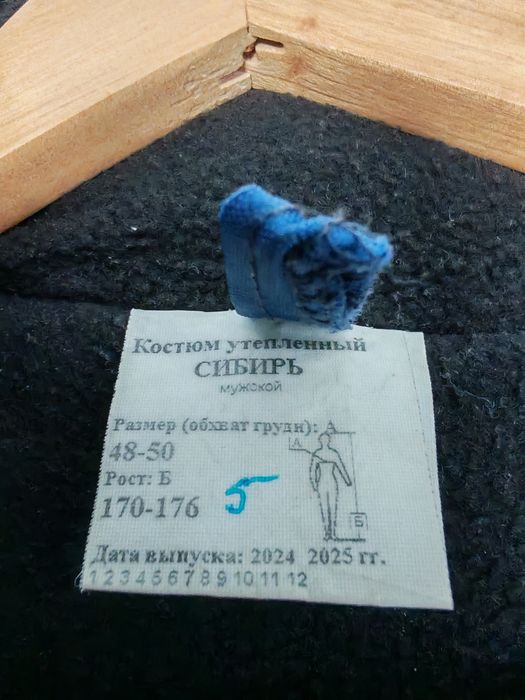 Костюм утепленный
СИБИРЬ
мужской
Размер (обхват груди): А
48-50
А
Рост: Б
170-176
5
Б
Дата выпуска: 2024 2025 гг.
1 2 3 4 5 6 7 8 9 10 11 12